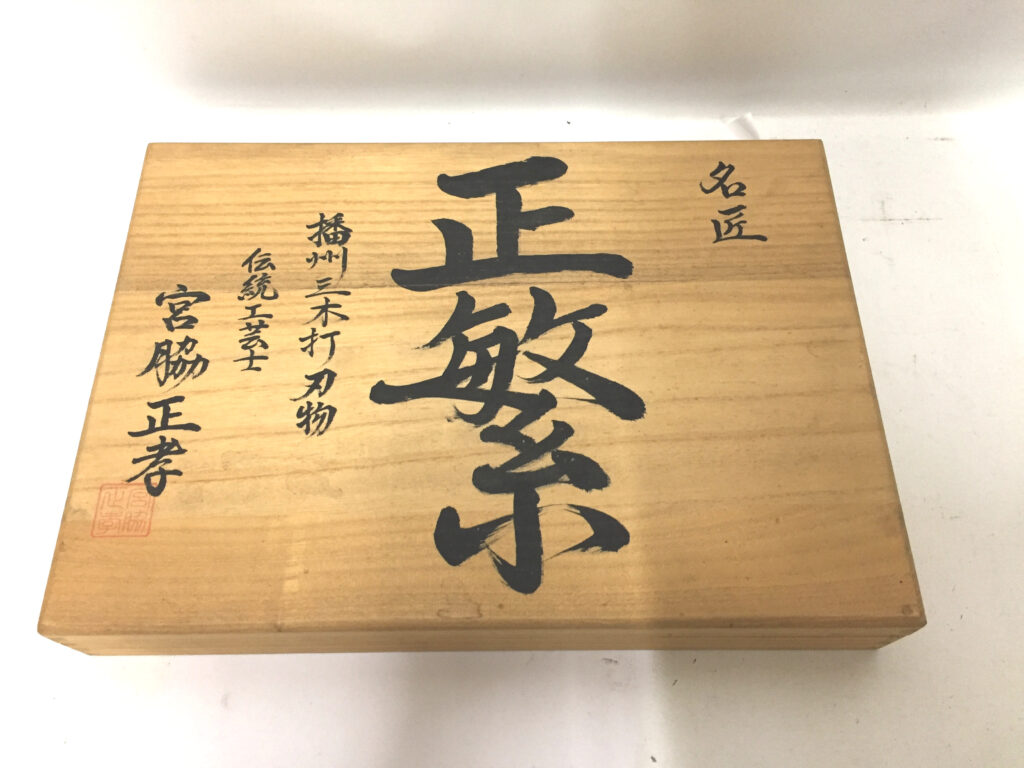 名匠
正繁
播州三木打刃物
伝統工芸士
宮脇正孝